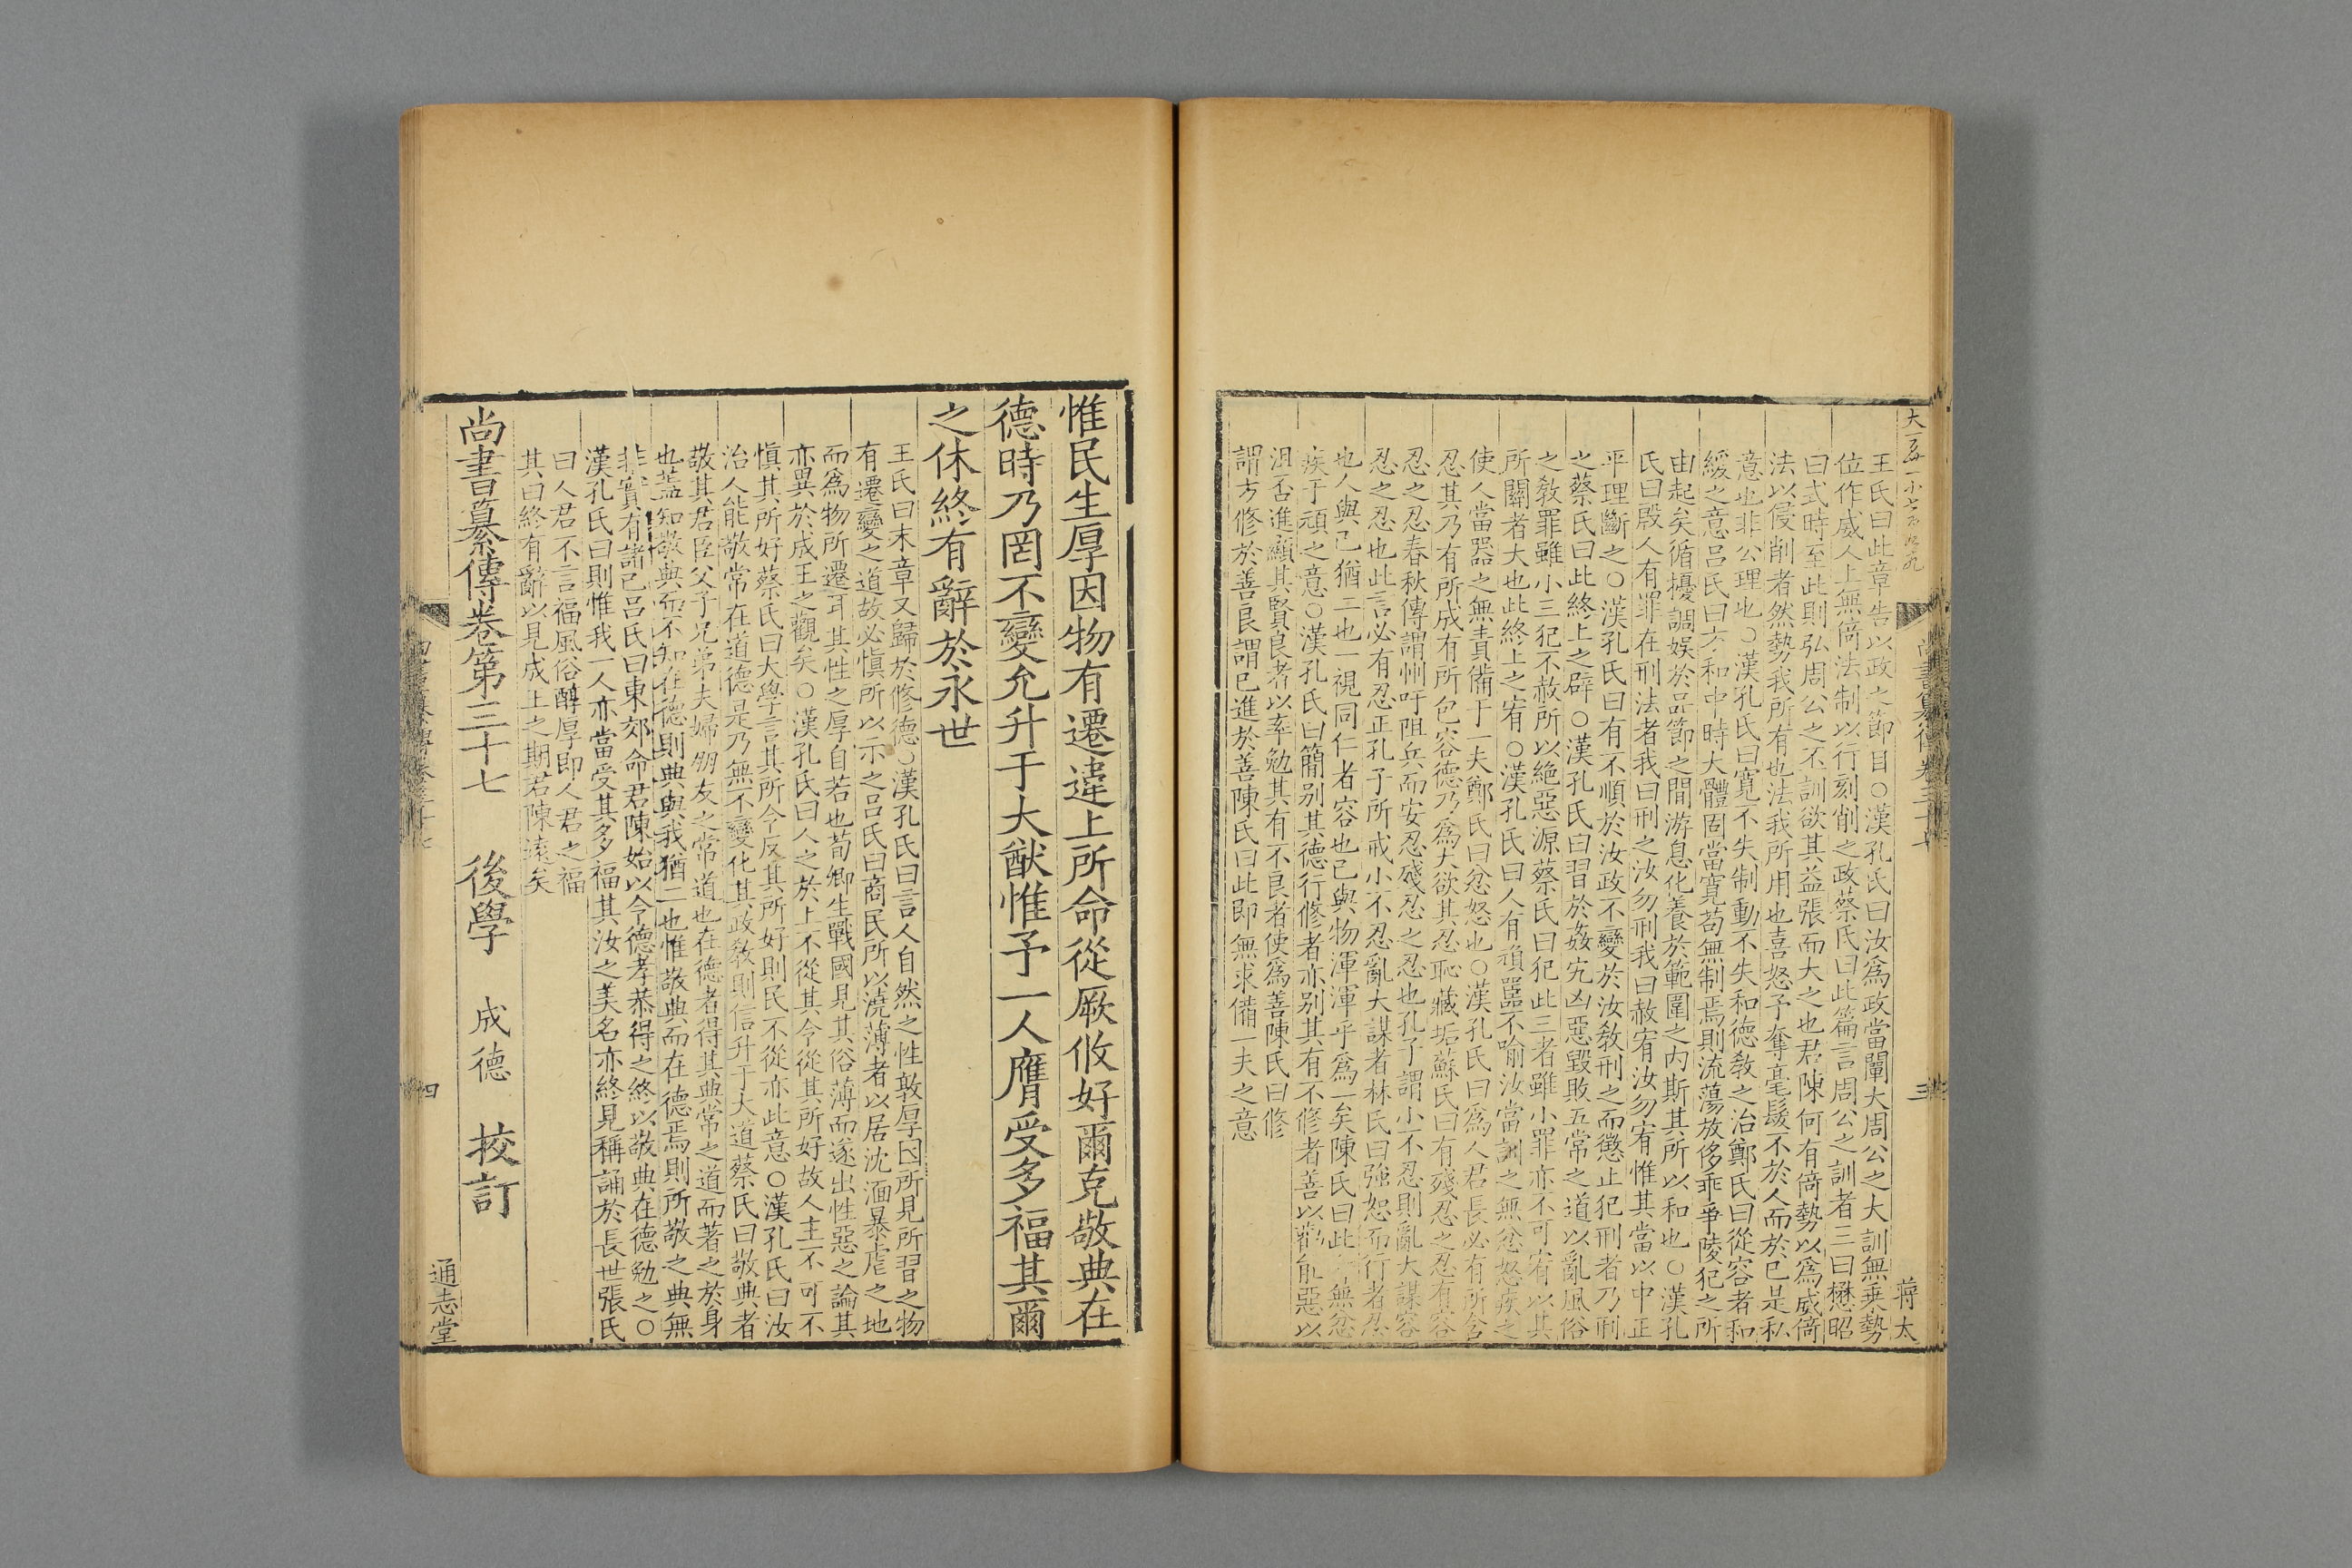 王氏曰此章告以政之節目○漢孔氏曰汝爲政當闡大周公之大訓無乗勢
位作威人上無倚法制以行刻削之政蔡氏曰此篇言周公之訓者三曰懋昭
曰式時至此則弘周公之不訓欲其益張而大之也君陳何有倚勢以爲威倚
法以侵削者然勢我所有也法我所用也喜怒予奪毫髪不於人而於己是私
意也非公理也○漢孔氏曰寛不失制動不失和德敎之治鄭氏曰從容者和
緩之意吕氏曰方和中時大體固當寛苟無制焉則流蕩放侈乖爭陵犯之所
由起矣循擾調娱於品節之間游息化養於範圍之内斯其所以和也○漢孔
氏曰殷人有罪在刑法者我曰刑之汝勿刑我曰赦宥汝勿宥惟其當以中正
平理斷之○漢孔氏曰有不順於汝政不變於汝敎刑之而懲止犯刑者乃刑
之蔡氏曰此終上之辟○漢孔氏曰習於姦宄凶惡毁敗五常之道以亂風俗
之敎罪雖小三犯不赦所以絶惡源蔡氏曰犯此三者雖小罪亦不可宥以其
所關者大也此終上之宥○漢孔氏曰人有頑嚚不喻汝當訓之無忿怒疾之
使人當器之無責備于一夫鄭氏曰忿怒也○漢孔氏曰爲人君長必有所含
忍其乃有所成有所包容德乃爲大欲其忍恥藏垢蘇氏曰有殘忍之忍有容
忍之忍春秋傳謂州吁阻兵而安忍殘忍之忍也孔子謂小不忍則亂大謀容
忍之忍也此言必有忍正孔子所戒小不忍亂大謀者林氏曰強恕而行者忍
也人與己猶二也一視同仁者容也己與物渾渾乎爲一矣陳氏曰此無忿
疾于頑之意○漢孔氏曰簡别其德行修者亦别其有不修者善以勸能惡以
沮否進顯其賢良者以率勉其有不良者使爲善陳氏曰修
謂方修於善良謂已進於善陳氏曰此即無求備一夫之意
蔣太
三
惟民生厚因物有遷違上所命從厥攸好爾克敬典在
德時乃罔不變允升于大猷惟予一人膺受多福其爾
之休終有辭於永世
王氏曰末章又歸於修德○漢孔氏曰言人自然之性敦厚因所見所習之物
有遷變之道故必慎所以示之吕氏曰商民所以澆薄者以居沈湎暴虐之地
而爲物所遷耳其性之厚自若也荀卿生戰國見其俗薄而遂出性惡之論其
亦異於成王之觀矣○漢孔氏曰人之於上不從其令從其所好故人主不可不
慎其所好蔡氏曰大學言其所令反其所好則民不從亦此意○漢孔氏曰汝
治人能敬常在道德是乃無不變化其政敎則信升于大道蔡氏曰敬典者
敬其君臣父子兄弟夫婦朋友之常道也在德者得其典常之道而著之於身
也蓋知敬典而不知在德則典與我猶二也惟敬典而在德焉則所敬之典無
非實有諸己吕氏曰東郊命君陳始以令德孝恭得之終以敬典在德勉之○
漢孔氏曰則惟我一人亦當受其多福其汝之美名亦終見稱誦於長世張氏
曰人君不言福風俗醇厚即人君之福
其曰終有辭以見成王之期君陳遠矣
尚書纂傳卷第三十七　後學　成德　挍訂
四
通志堂